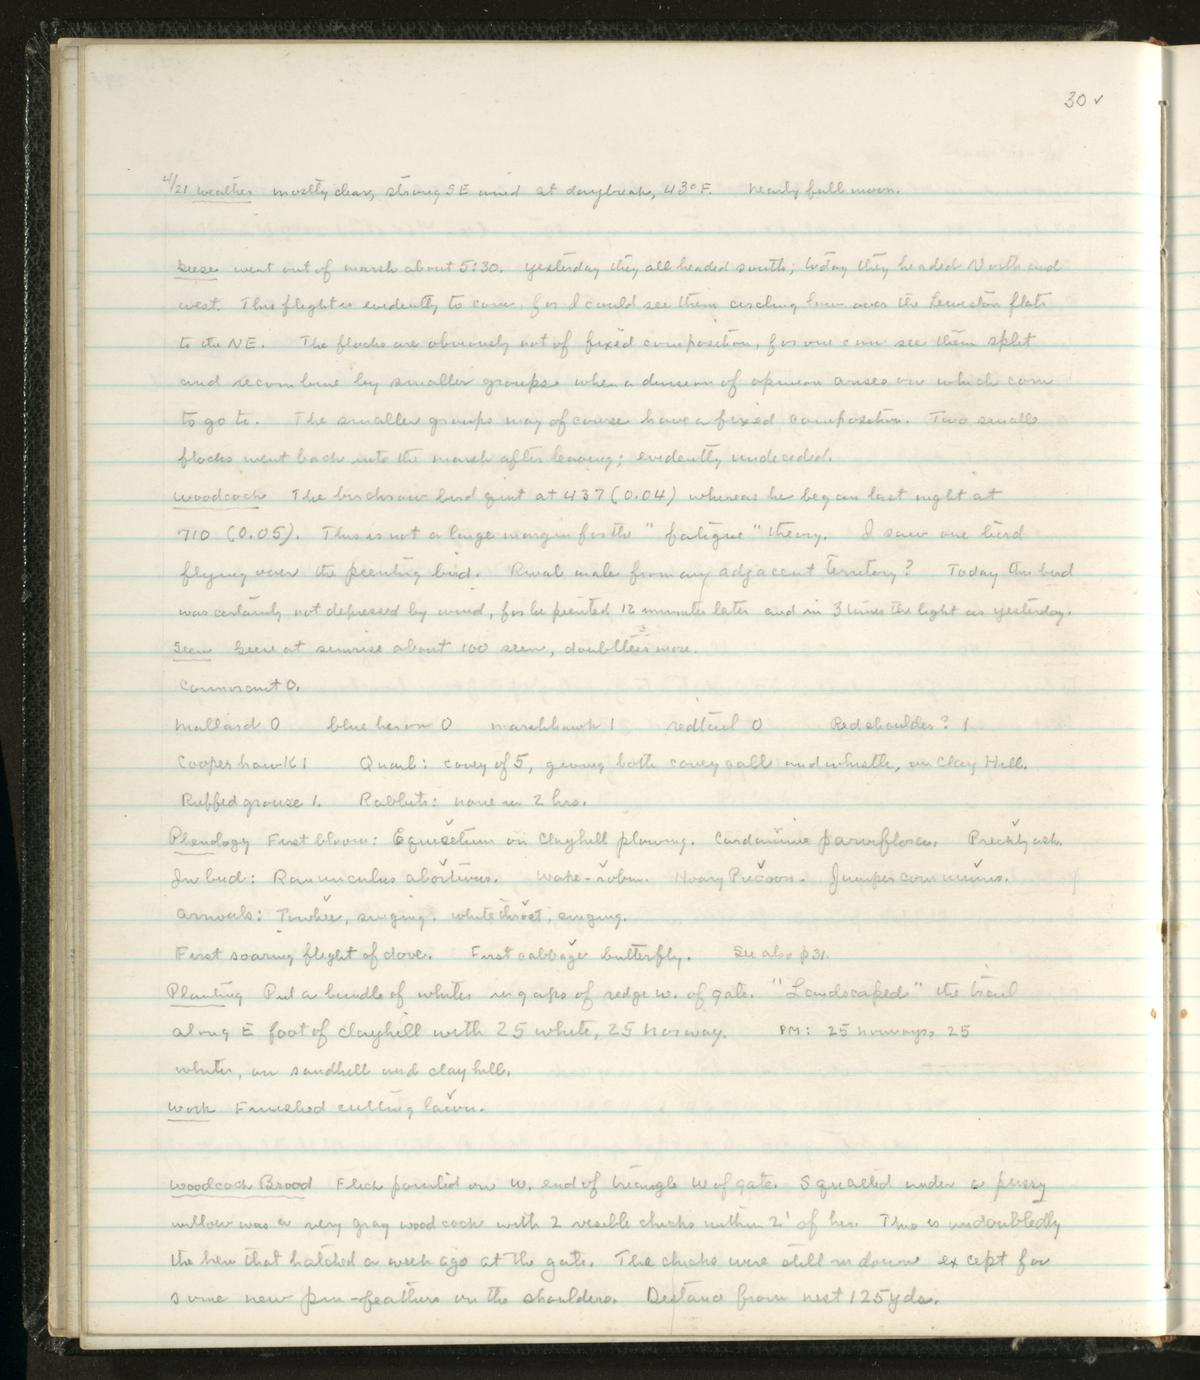 30 ✓
4/21 Weather mostly clear, strong SE wind at daybreak, 43° F. Nearly full moon.
Geese went out of marsh about 5:30. Yesterday they all headed south; today they headed North and
west. This flight is evidently to corn, for I could see them circling low over the Lewiston flats
to the NE. The flocks are obviously not of fixed composition, for one can see them split
and recombine by smaller groups when a division of opinion arises on which corn
to go to. The smaller groups may of course have a fixed composition. Two small
flocks went back into the marsh after leaving; evidently undecided.
Woodcock The birchrow bird quit at 437 (0.04) whereas he began last night at
710 (0.05). This is not a large margin for the "fatigue" theory. I saw one bird
flying over the peenting bird. Rival male from any adjacent territory? Today the bird
was certainly not depressed by wind, for he peented 12 minutes later and in 3 times the light as yesterday.
Seen Geese at sunrise about 100 seen, doubtless more.
Cormorant 0.
Mallard 0 blue heron 0 marshhawk 1 redtail 0 Redshoulder? 1
Cooper hawk 1 Quail: covey of 5, giving both covey call and whistle, on Clay Hill.
Ruffed grouse 1. Rabbits: none in 2 hrs.
Phenology First bloom: Equisetum on Clayhill plowing. Cardamine parviflora. Prickly ash.
In bud: Ranunculus abortivus. Wake-robin. Hoary Puccoon. Juniper communis.
Arrivals: Towhee, singing. whitethroat, singing.
First soaring flight of dove. First cabbage butterfly. See also p31.
Planting Put a bundle of whites in gaps of sedge w. of gate. "Landscaped" the trail
along E foot of clayhill with 25 white, 25 Norway. PM: 25 norways, 25
whites, on sandhill and clayhill.
Work Finished cutting lawn.
Woodcock Brood Flick pointed on W. end of triangle W of gate. Squatted under a pussy
willow was a very gray woodcock with 2 visible chicks within 2' of her. This is undoubtedly
the hen that hatched a week ago at the gate. The chicks were still in down except for
some new pin-feathers on the shoulders. Distance from nest 125 yds.